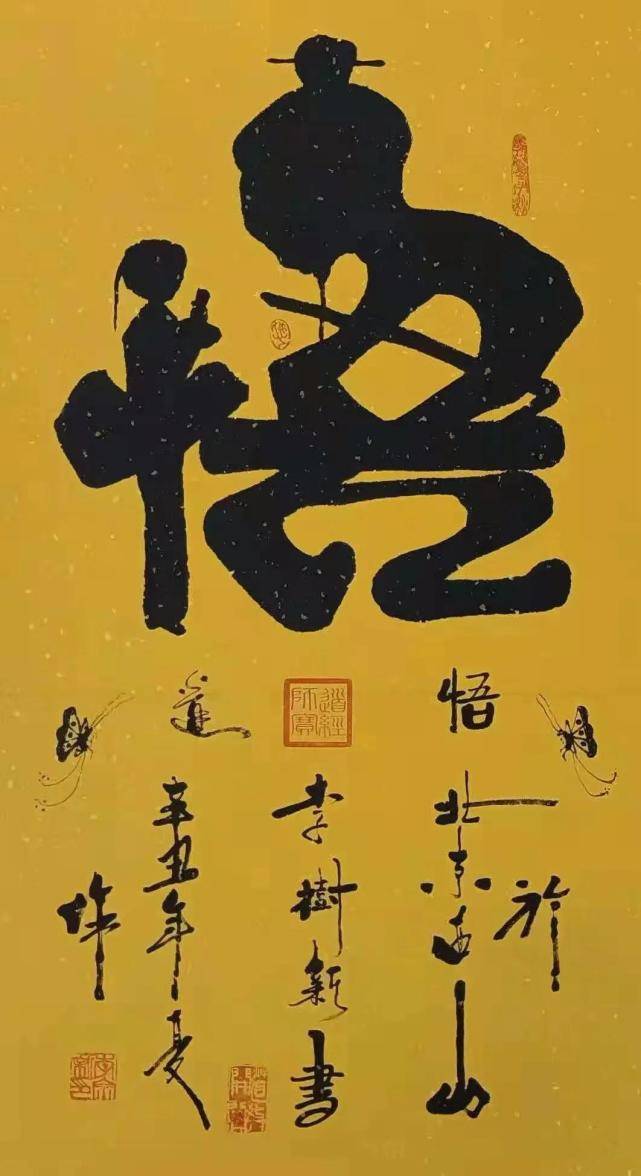 悟
悟
道
道經師寶
於
北京西山
李樹新書
辛丑年夏
作